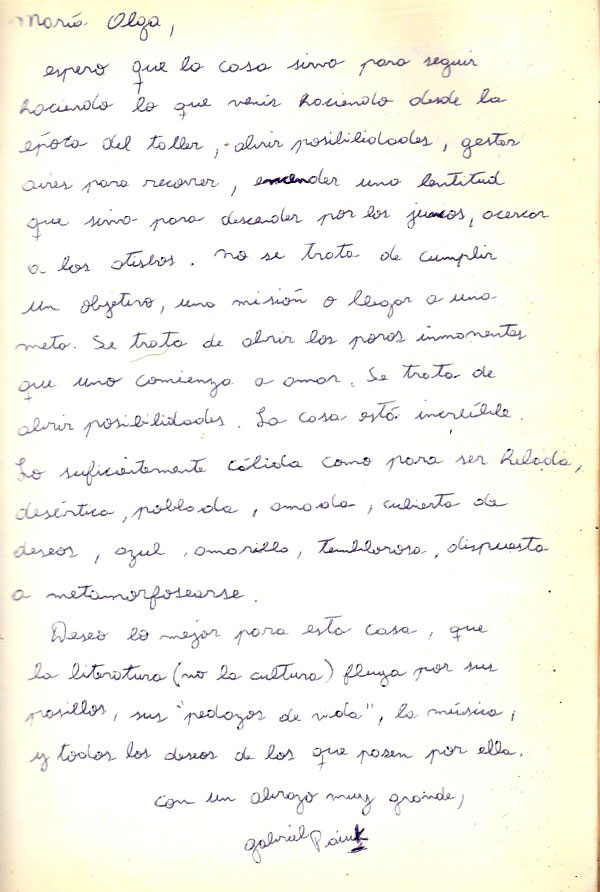 María Olga,
espero que la casa sirva para seguir
haciendo lo que venís haciendo desde la
época del taller, abrir posibilidades, gestar
aires para recorrer, encender una lentitud
que sirva para descender por los juncos, acercar
a los atisbos. No se trata de cumplir
un objetivo, una misión o llegar a una
meta. Se trata de abrir los poros inmanentes
que uno comienza a amar. Se trata de
abrir posibilidades. La casa está increíble.
Lo suficientemente cálida como para ser helada,
desértica, poblada, amada, cubierta de
deseos, azul, amarilla, temblorosa, dispuesta
a metamorfosearse.
Deseo lo mejor para esta casa, que
la literatura (no la cultura) fluya por sus
pasillos, sus "pedazos de vida", la música,
y todos los deseos de los que pasen por ella.
con un abrazo muy grande,
gabriel